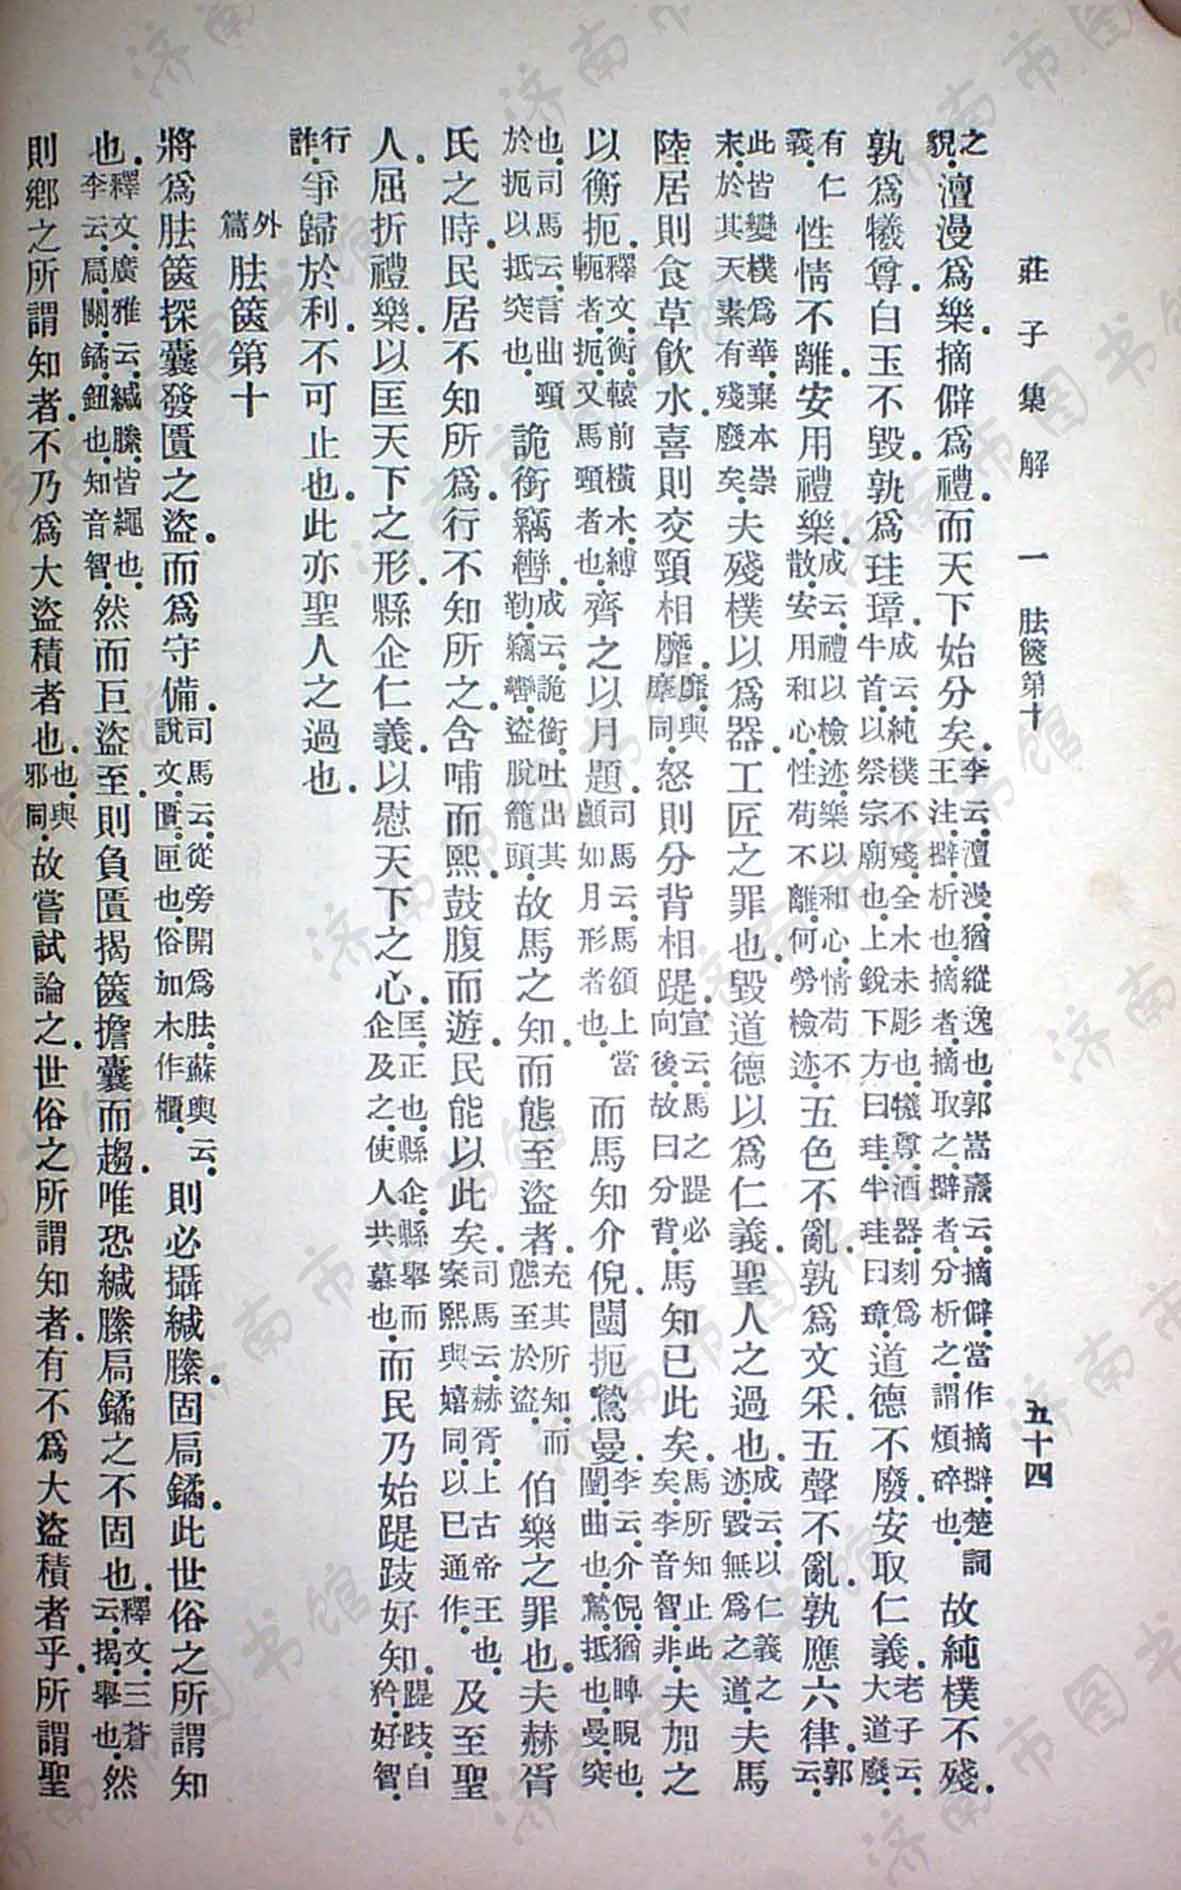 莊子集解　一　胠篋第十　五十四
之貌。澶漫爲樂。摘僻爲禮。而天下始分矣。李云。澶漫。猶縱逸也。郭嵩燾云。摘僻。當作摘擗。楚詞王注。擗。析也。摘者。摘取之。擗者。分析之。謂煩碎也。故純樸不殘。
孰爲犧尊。白玉不毀。孰爲珪璋。成云。純樸不殘。全木未彫也。犧尊。酒器。刻爲牛首。以祭宗廟也。上銳下方曰珪。半珪曰璋。道德不廢。安取仁義。老子云。大道廢。
有仁義。性情不離。安用禮樂。成云。禮以檢迹。樂以和心。情苟不散。安用和心。性苟不離。何勞檢迹。五色不亂。孰爲文采。五聲不亂。孰應六律。郭云。
此皆變樸爲華。棄本崇末。於其天素有殘廢矣。夫殘樸以爲器。工匠之罪也。毀道德以爲仁義。聖人之過也。成云。以仁義之迹。毀無爲之道。夫馬
陸居則食草飲水。喜則交頸相靡。靡與摩同。怒則分背相踶。宣云。馬之踶必向後。故曰分背。馬知已此矣。馬所知止此矣。李音智。非。夫加之
以衡扼。釋文。衡。轅前橫木。縛軛者。扼。叉馬頸者也。齊之以月題。司馬云。馬額上當顱如月形者也。而馬知介倪。闉扼鷙曼。李云。介倪。猶睥睨也。闉。曲也。鷙。抵也。曼。突
也。司馬云。言曲頸於扼以抵突也。詭銜竊轡。成云。詭銜。吐出其勒。竊轡。盜脫籠頭。故馬之知而態至盜者。充其所知。而態至於盜。伯樂之罪也。夫赫胥
氏之時。民居不知所爲。行不知所之。含哺而熙。鼓腹而遊。民能以此矣。司馬云。赫胥。上古帝王也。案熙與嬉同。以已通作。及至聖
人。屈折禮樂。以匡天下之形。縣企仁義。以慰天下之心。匡。正也。縣企。縣舉而企及之。使人共慕也。而民乃始踶跂好知。踶跂。自矜。好智。
行詐。爭歸於利。不可止也。此亦聖人之過也。
外篇　胠篋第十
將爲胠篋探囊發匱之盜。而爲守備。司馬云。從旁開爲胠。蘇輿云。說文。匱。匣也。俗加木作櫃。則必攝緘縢。固扃鐍。此世俗之所謂知
也。釋文。廣雅云。緘縢。皆繩也。李云。扃。關。鐍。鈕也。知音智。然而巨盜至。則負匱揭篋擔囊而趨。唯恐緘縢扃鐍之不固也。釋文。三蒼云。揭。舉也。然
則鄉之所謂知者。不乃爲大盜積者也。也。與邪同。故嘗試論之。世俗之所謂知者。有不爲大盜積者乎。所謂聖